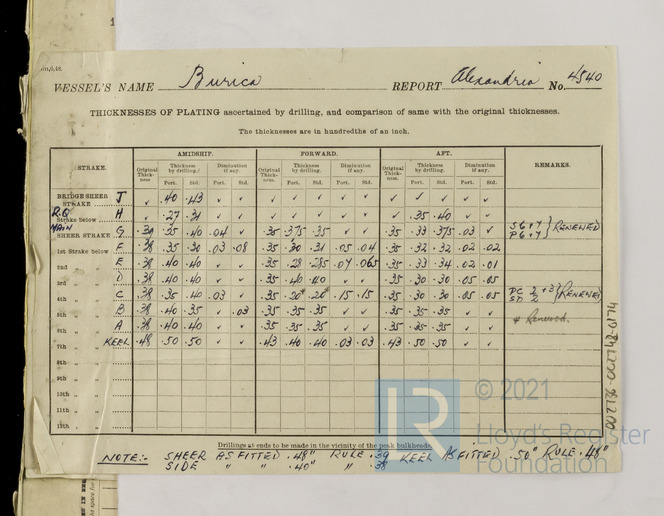 VESSEL'S NAME Burica REPORT Alexandria No. 4540
THICKNESSES OF PLATING ascertained by drilling, and comparison of same with the original thicknesses.
The thicknesses are in hundredths of an inch.
STRAKE. AMIDSHIP. FORWARD. AFT. REMARKS.
Original Thickness Thickness by drilling. Diminution if any. Original Thickness Thickness by drilling. Diminution if any. Original Thickness Thickness by drilling. Diminution if any.
Port. Std. Port. Std. Port. Std. Port. Std. Port. Std. Port. Std.
BRIDGE SHEER STRAKE J ✓ .40 .43 ✓ ✓ ✓ ✓ ✓ ✓ ✓ ✓ ✓ ✓ ✓ ✓
Strake below H ✓ .27 .31 ✓ ✓ ✓ ✓ ✓ ✓ ✓ ✓ .35 .40 ✓ ✓
MAIN SHEER STRAKE G .39 .35 .40 .04 ✓ .35 .375 .35 ✓ ✓ .35 .33 .375 .03 ✓ RENEWED
1st Strake below F .38 .35 .30 .03 .08 .35 .30 .31 .05 .04 .35 .32 .32 .02 .02
2nd " " E .38 .40 .40 ✓ ✓ .35 .28 .285 .07 .065 .35 .33 .34 .02 .01
3rd " " D .38 .40 .40 ✓ ✓ .35 .40 .40 ✓ ✓ .35 .30 .30 .05 .05
4th " " C .38 .35 .40 .03 ✓ .35 .20 .20 .15 .15 .35 .30 .30 .05 .05 RENEWED
5th " " B .38 .40 .35 ✓ .03 .35 .35 .35 ✓ ✓ .35 .35 .35 ✓ ✓ + Renewed.
6th " " A .38 .40 .40 ✓ ✓ .35 .35 .35 ✓ ✓ .35 .35 .35 ✓ ✓
7th " " KEEL .48 .50 .50 ✓ ✓ .43 .40 .40 .03 .03 .43 .50 .50 ✓ ✓
8th " "
9th " "
10th " "
11th " "
12th " "
13th " "
Drillings at ends to be made in the vicinity of the peak bulkheads.
NOTE:- SHEER AS FITTED .48" RULE .39 KEEL AS FITTED .50" RULE .48"
SIDE " " .40" " .38
002186-002148-0174
LR
© 2021
Lloyd's Register
Foundation